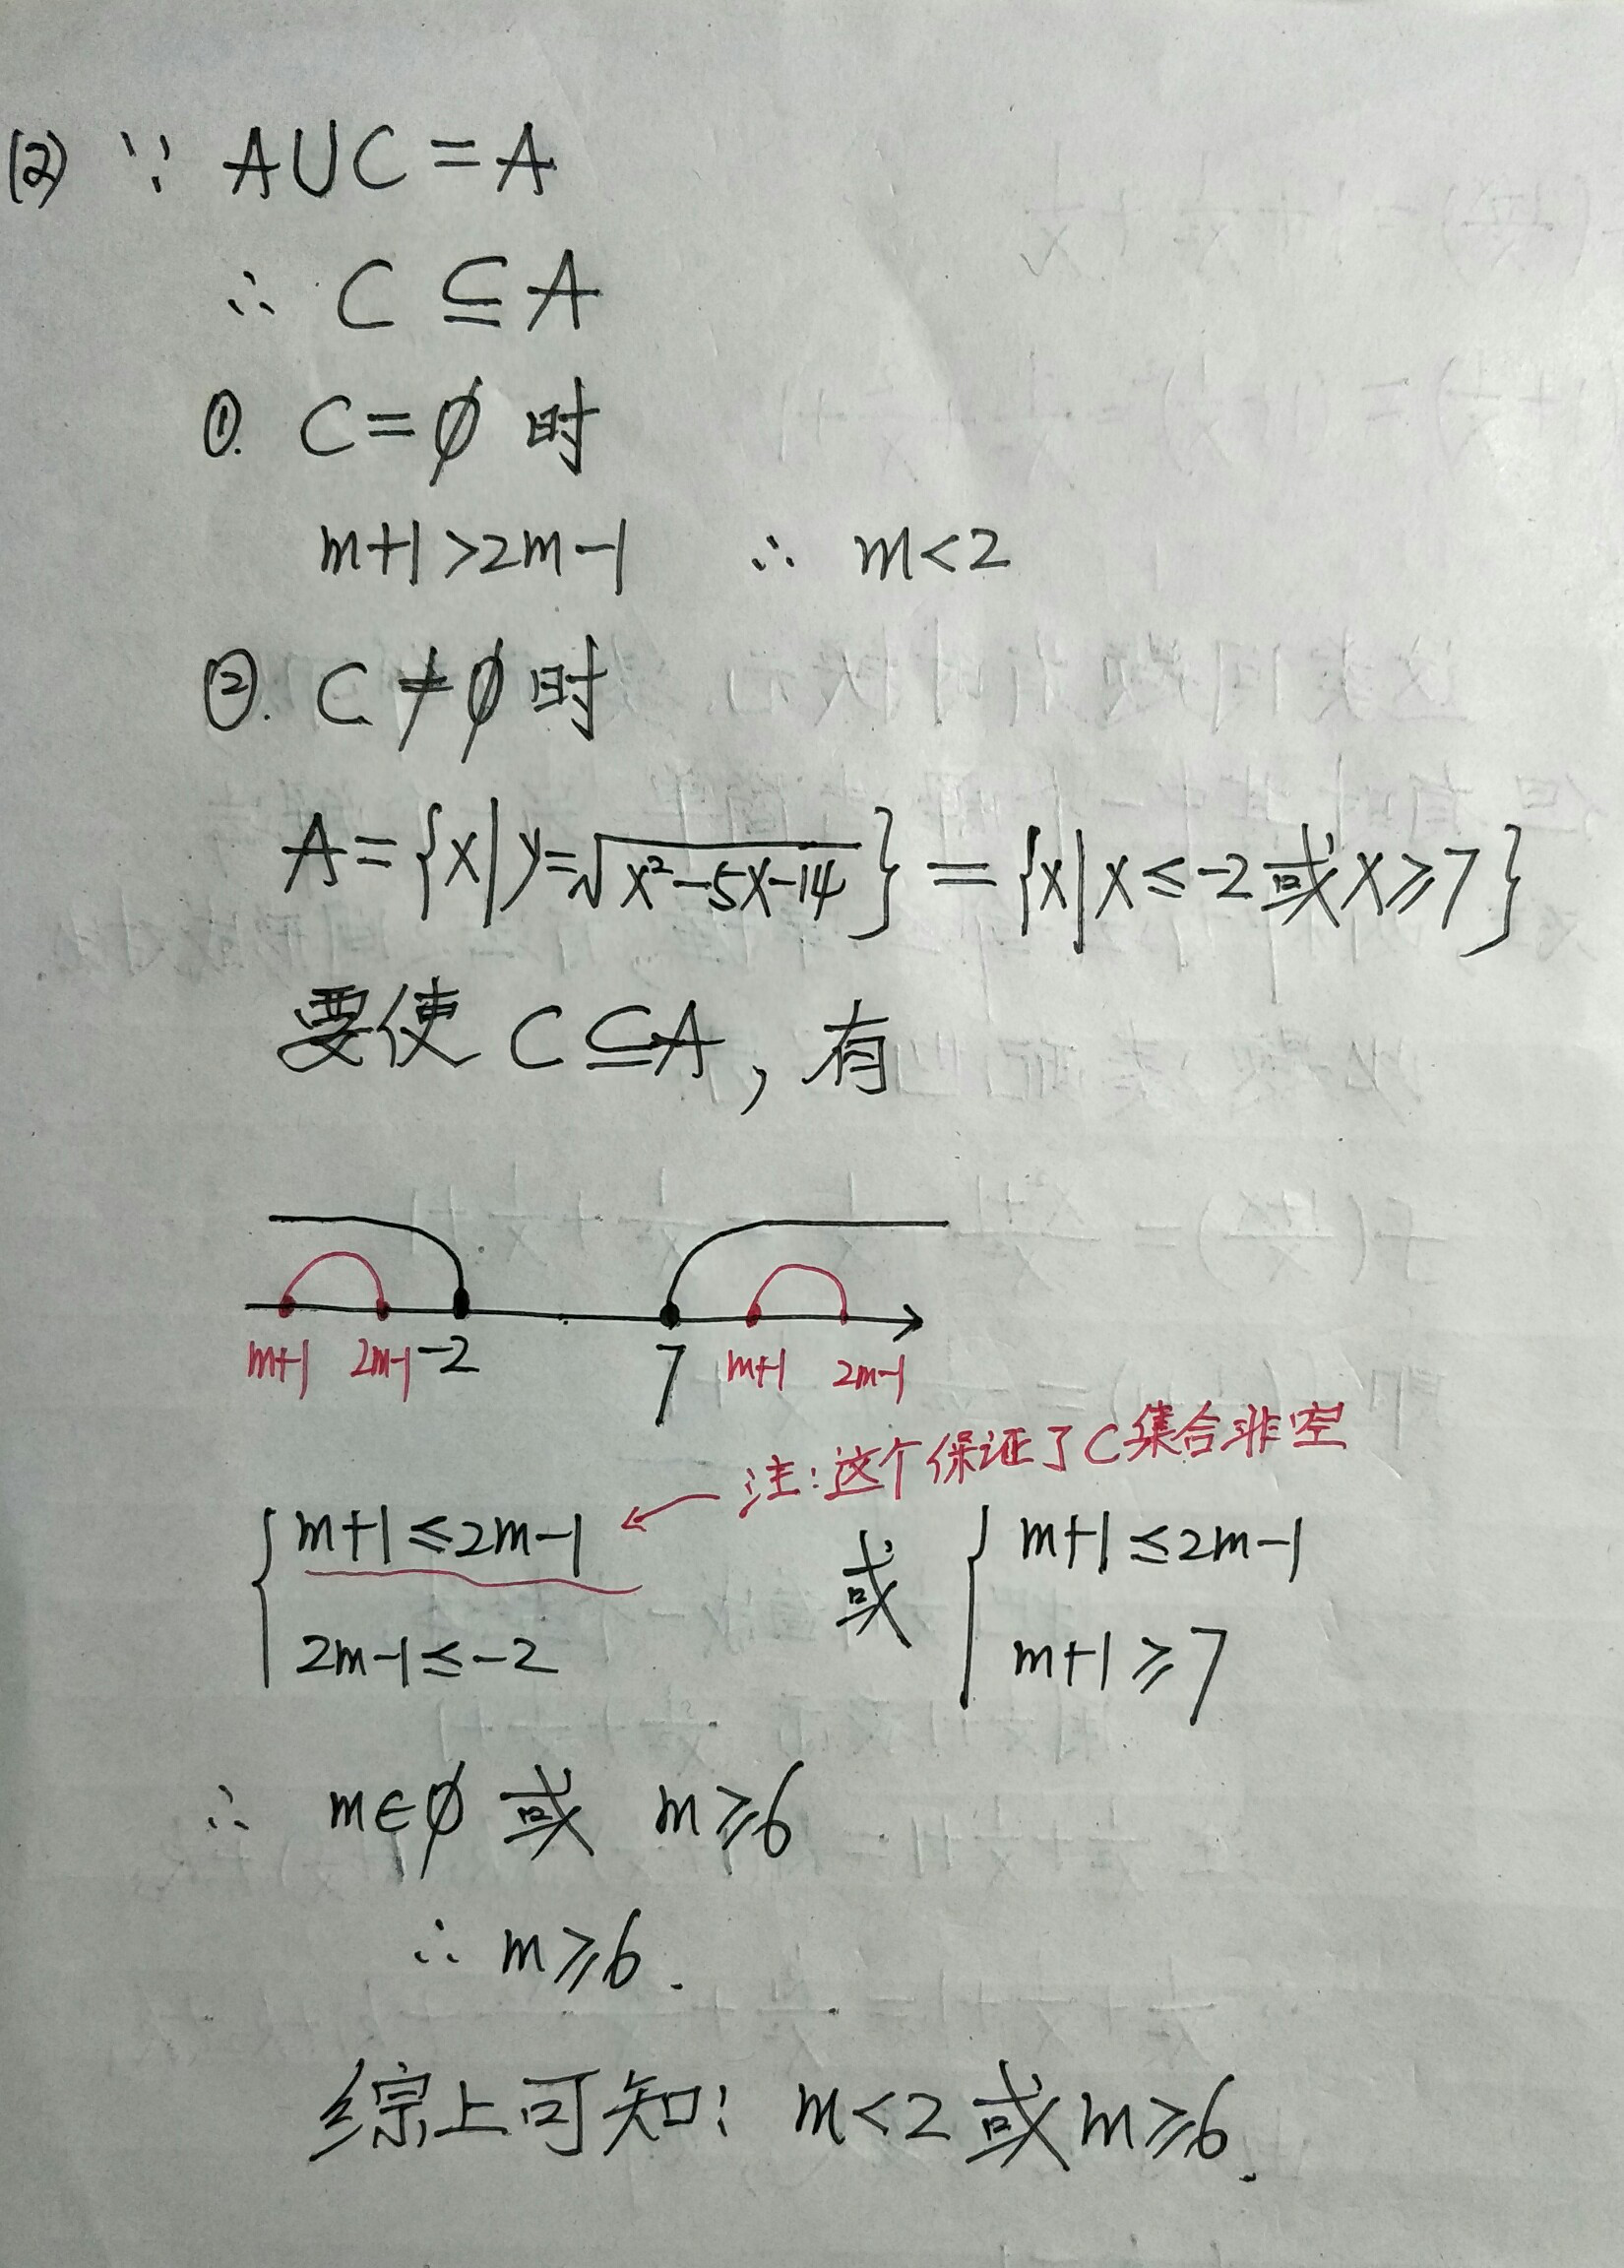 (2) ∵ A∪C=A
∴ C⊆A
①. C=∅ 时
m+1>2m-1 ∴ m<2
②. C≠∅ 时
A={x|y=√(x²-5x-14)}={x|x≤-2或x≥7}
要使 C⊆A, 有
m+1 2m-1 -2 7 m+1 2m-1
注:这个保证了C集合非空
{ m+1≤2m-1 或 { m+1≤2m-1
2m-1≤-2 m+1≥7
∴ m∈∅ 或 m≥6
∴ m≥6.
综上可知: m<2或m≥6.